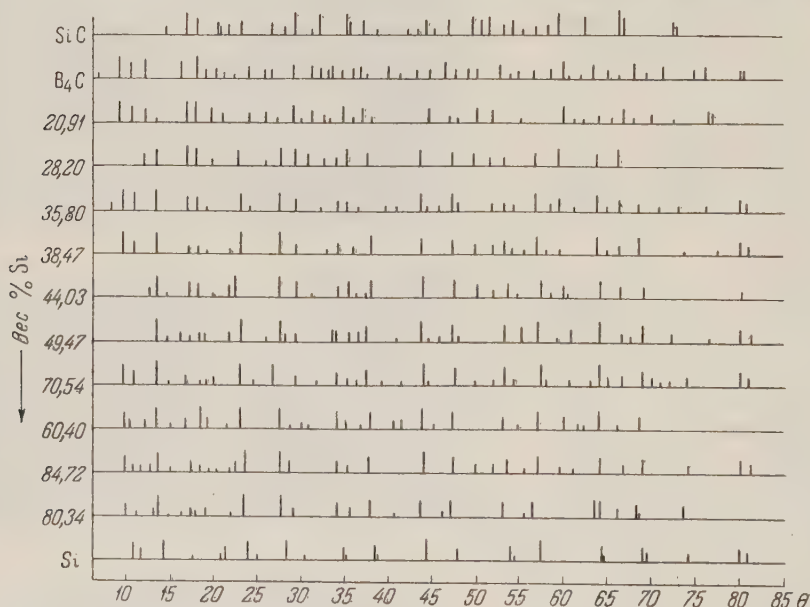 SiC
B4C
20,91
28,20
35,80
38,47
44,03
49,47
70,54
60,40
84,72
80,34
Si
Вес % Si
10 15 20 25 30 35 40 45 50 55 60 65 70 75 80 85 θ